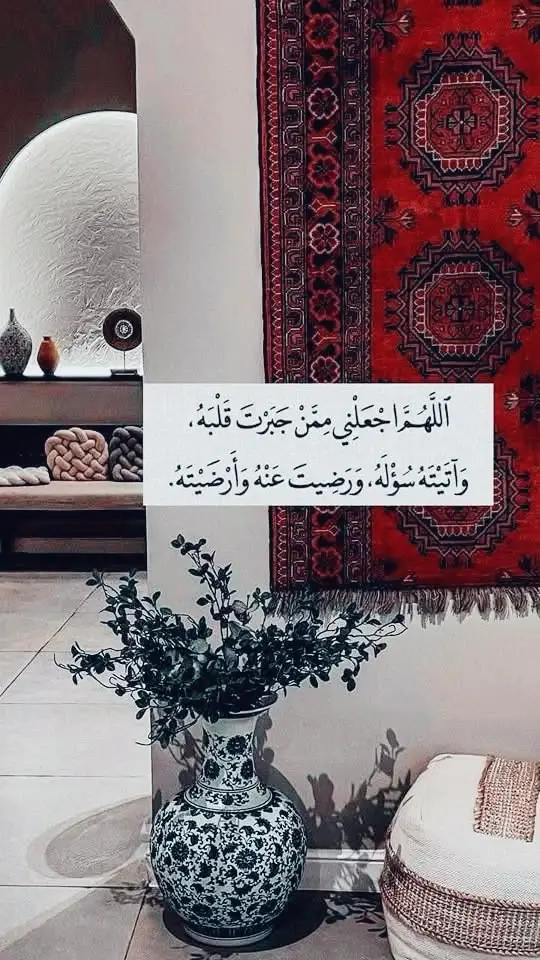 ٱللَّهُمَّ اجْعَلْنِي مِمَّنْ جَبَرْتَ قَلْبَهُ،
وَآتَيْتَهُ سُؤْلَهُ، وَرَضِيتَ عَنْهُ وَأَرْضَيْتَهُ.